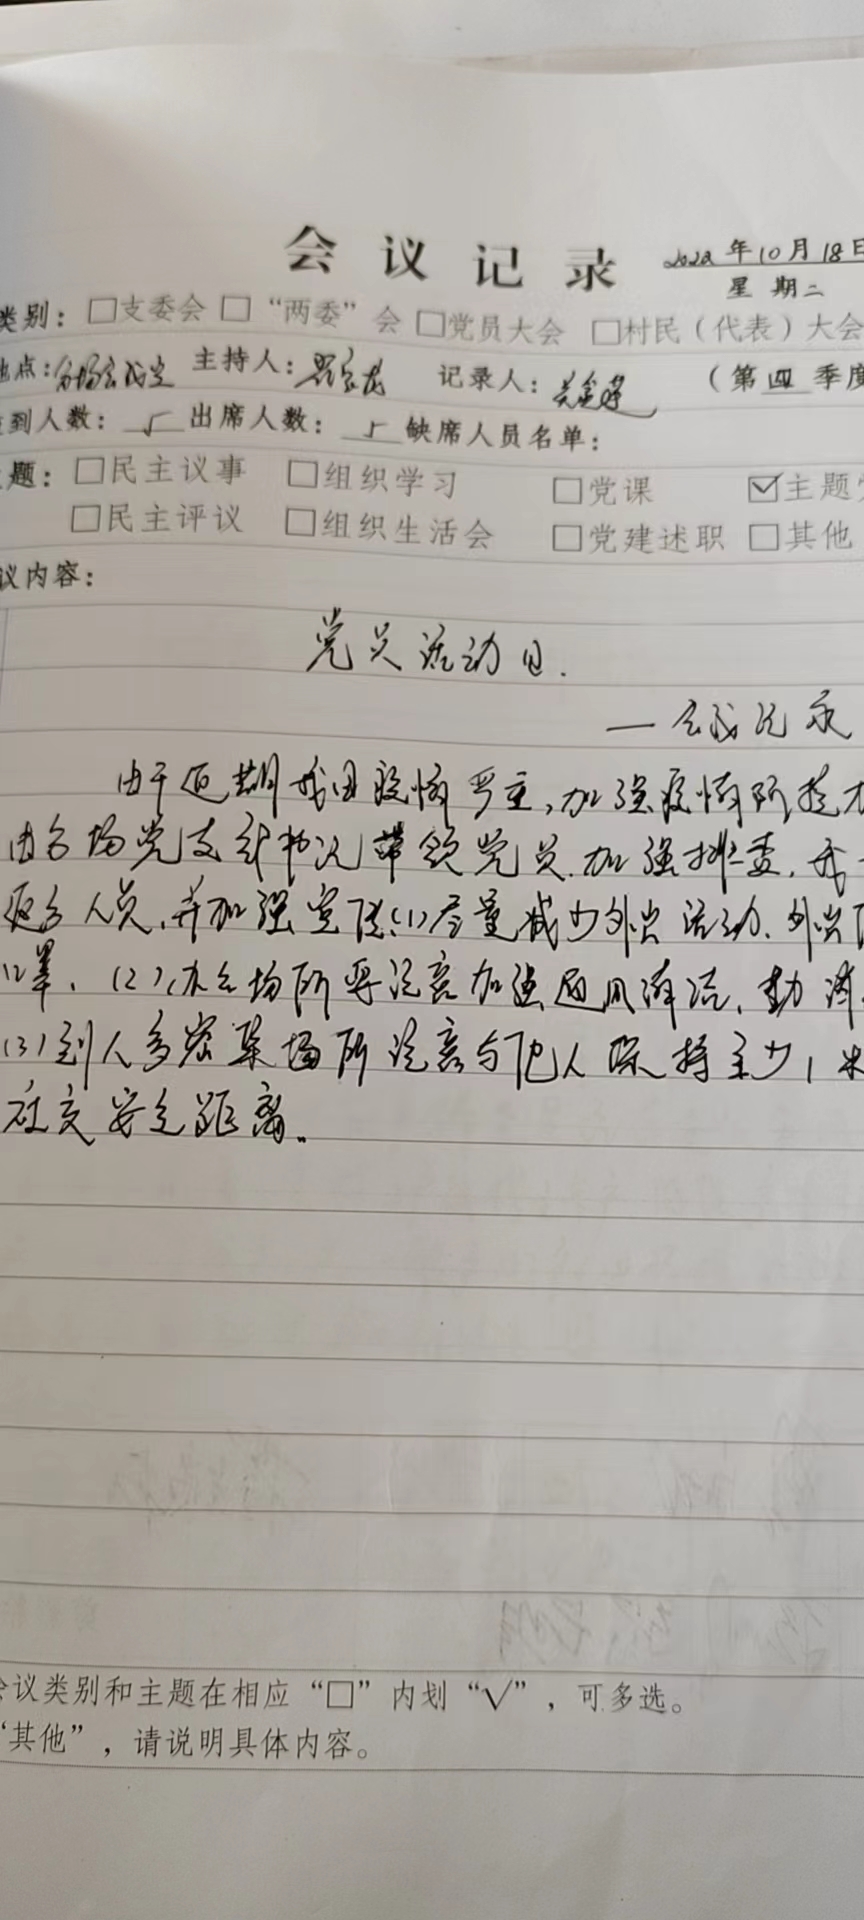 会议记录
2022年10月18日
星期二
类别：□支委会 □“两委”会 □党员大会 □村民（代表）大会
地点：分场会议室 主持人： 记录人： （第四季度
到人数：5 出席人数：5 缺席人员名单：
题：□民主议事 □组织学习 □党课 ☑主题
□民主评议 □组织生活会 □党建述职 □其他
议内容：
党员活动日.
—会议记录
由于近期我国疫情严重,加强疫情防控
由各场党支部书记带领党员.加强排查,我
返乡人员,并加强宣传(1)尽量减少外出活动.外出
口罩.(2),办公场所要注意加强通风清洁,勤
(3)到人多密集场所注意与他人保持至少1米
社交安全距离.
会议类别和主题在相应“□”内划“√”，可多选。
“其他”，请说明具体内容。